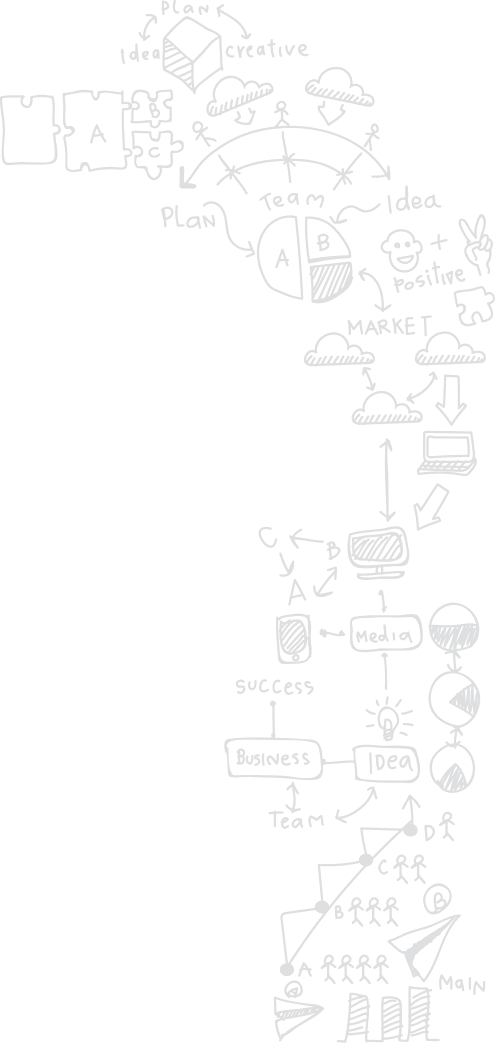 PLAN
Idea
creative
A
B
C
Team
PLAN
Idea
A
B
+
Positive
MARKET
C
B
A
Media
success
Business
IDea
Team
D
C
B
B
A
a
Main